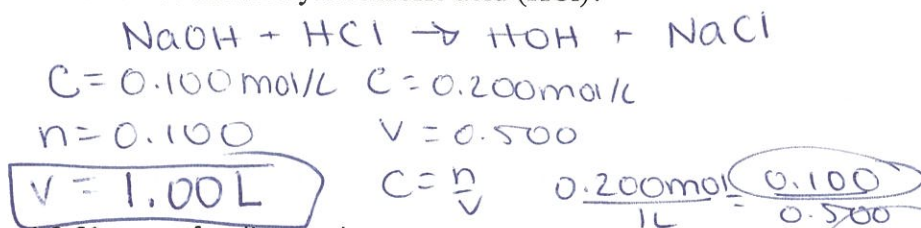 NaOH + HCl → HOH + NaCl
C = 0.100 mol/L C = 0.200 mol/L
n = 0.100 V = 0.500
V = 1.00 L C = n/V 0.200 mol/1L = 0.100/0.500